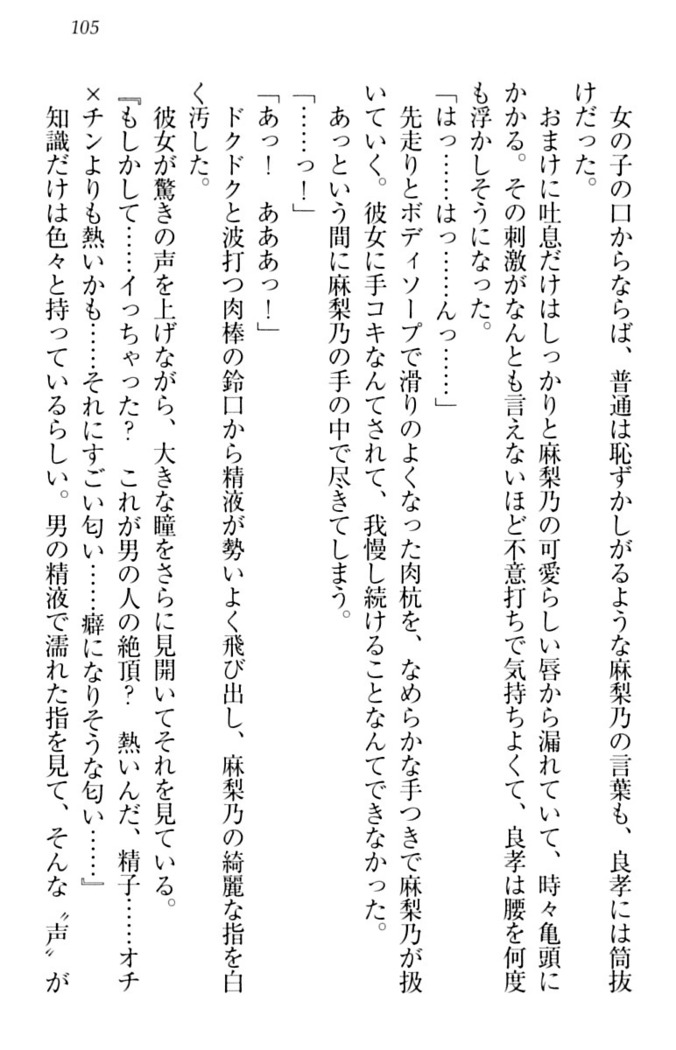 105
女の子の口からならば、普通は恥ずかしがるような麻梨乃の言葉も、良孝には筒抜
けだった。
おまけに吐息だけはしっかりと麻梨乃の可愛らしい唇から漏れていて、時々亀頭に
かかる。その刺激がなんとも言えないほど不意打ちで気持ちよくて、良孝は腰を何度
も浮かしそうになった。
「はっ……はっ……んっ……」
先走りとボディソープで滑りのよくなった肉杭を、なめらかな手つきで麻梨乃が扱
いていく。彼女に手コキなんてされて、我慢し続けることなんてできなかった。
あっという間に麻梨乃の手の中で尽きてしまう。
「……っ！」
「あっ！　あああっ！」
ドクドクと波打つ肉棒の鈴口から精液が勢いよく飛び出し、麻梨乃の綺麗な指を白
く汚した。
彼女が驚きの声を上げながら、大きな瞳をさらに見開いてそれを見ている。
『もしかして……イっちゃった？　これが男の人の絶頂？　熱いんだ、精子……オチ
×チンよりも熱いかも……それにすごい匂い……癖になりそうな匂い……』
知識だけは色々と持っているらしい。男の精液で濡れた指を見て、そんな〝声〟が